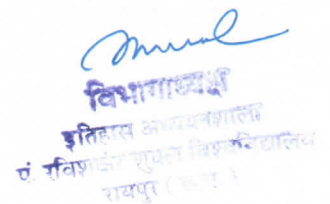 विभागाध्यक्ष
इतिहास अध्ययनशाला
पं. रविशंकर शुक्ल विश्वविद्यालय
रायपुर (